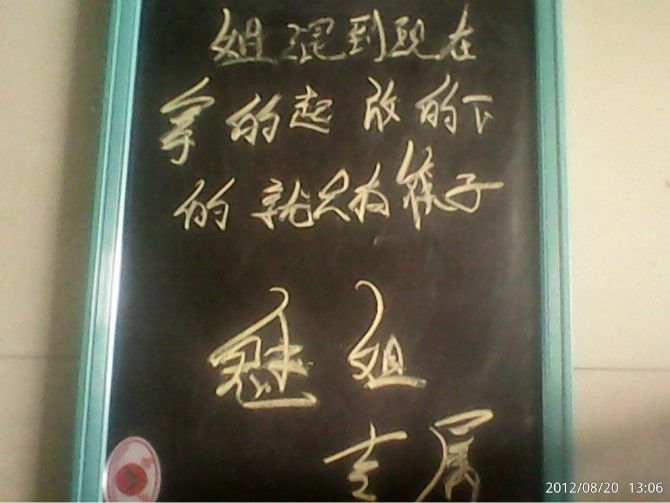 姐混到现在
拿的起 放的下
的 就只有筷子
姐
专属
2012/08/20 13:06